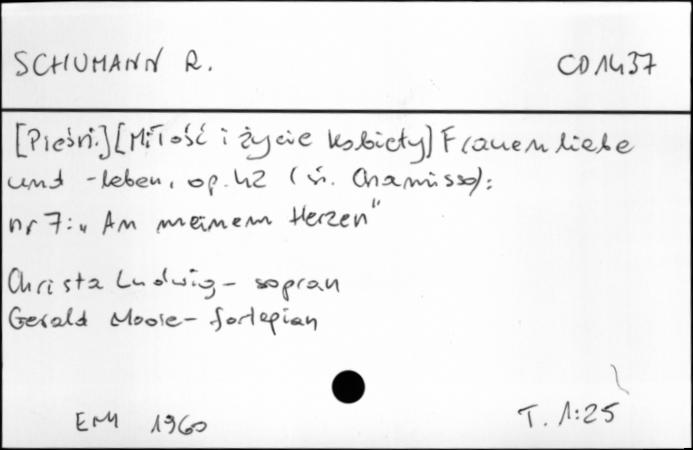 SCHUMANN R. CD 1437
[Pieśni.] [Miłość i życie kobiety] Frauenliebe
und -leben, op. 42 (ś. Chamisso):
nr 7: „An meinem Herzen"
Christa Ludwig - sopran
Gerald Moore - fortepian
EMI 1960 T. 1:25